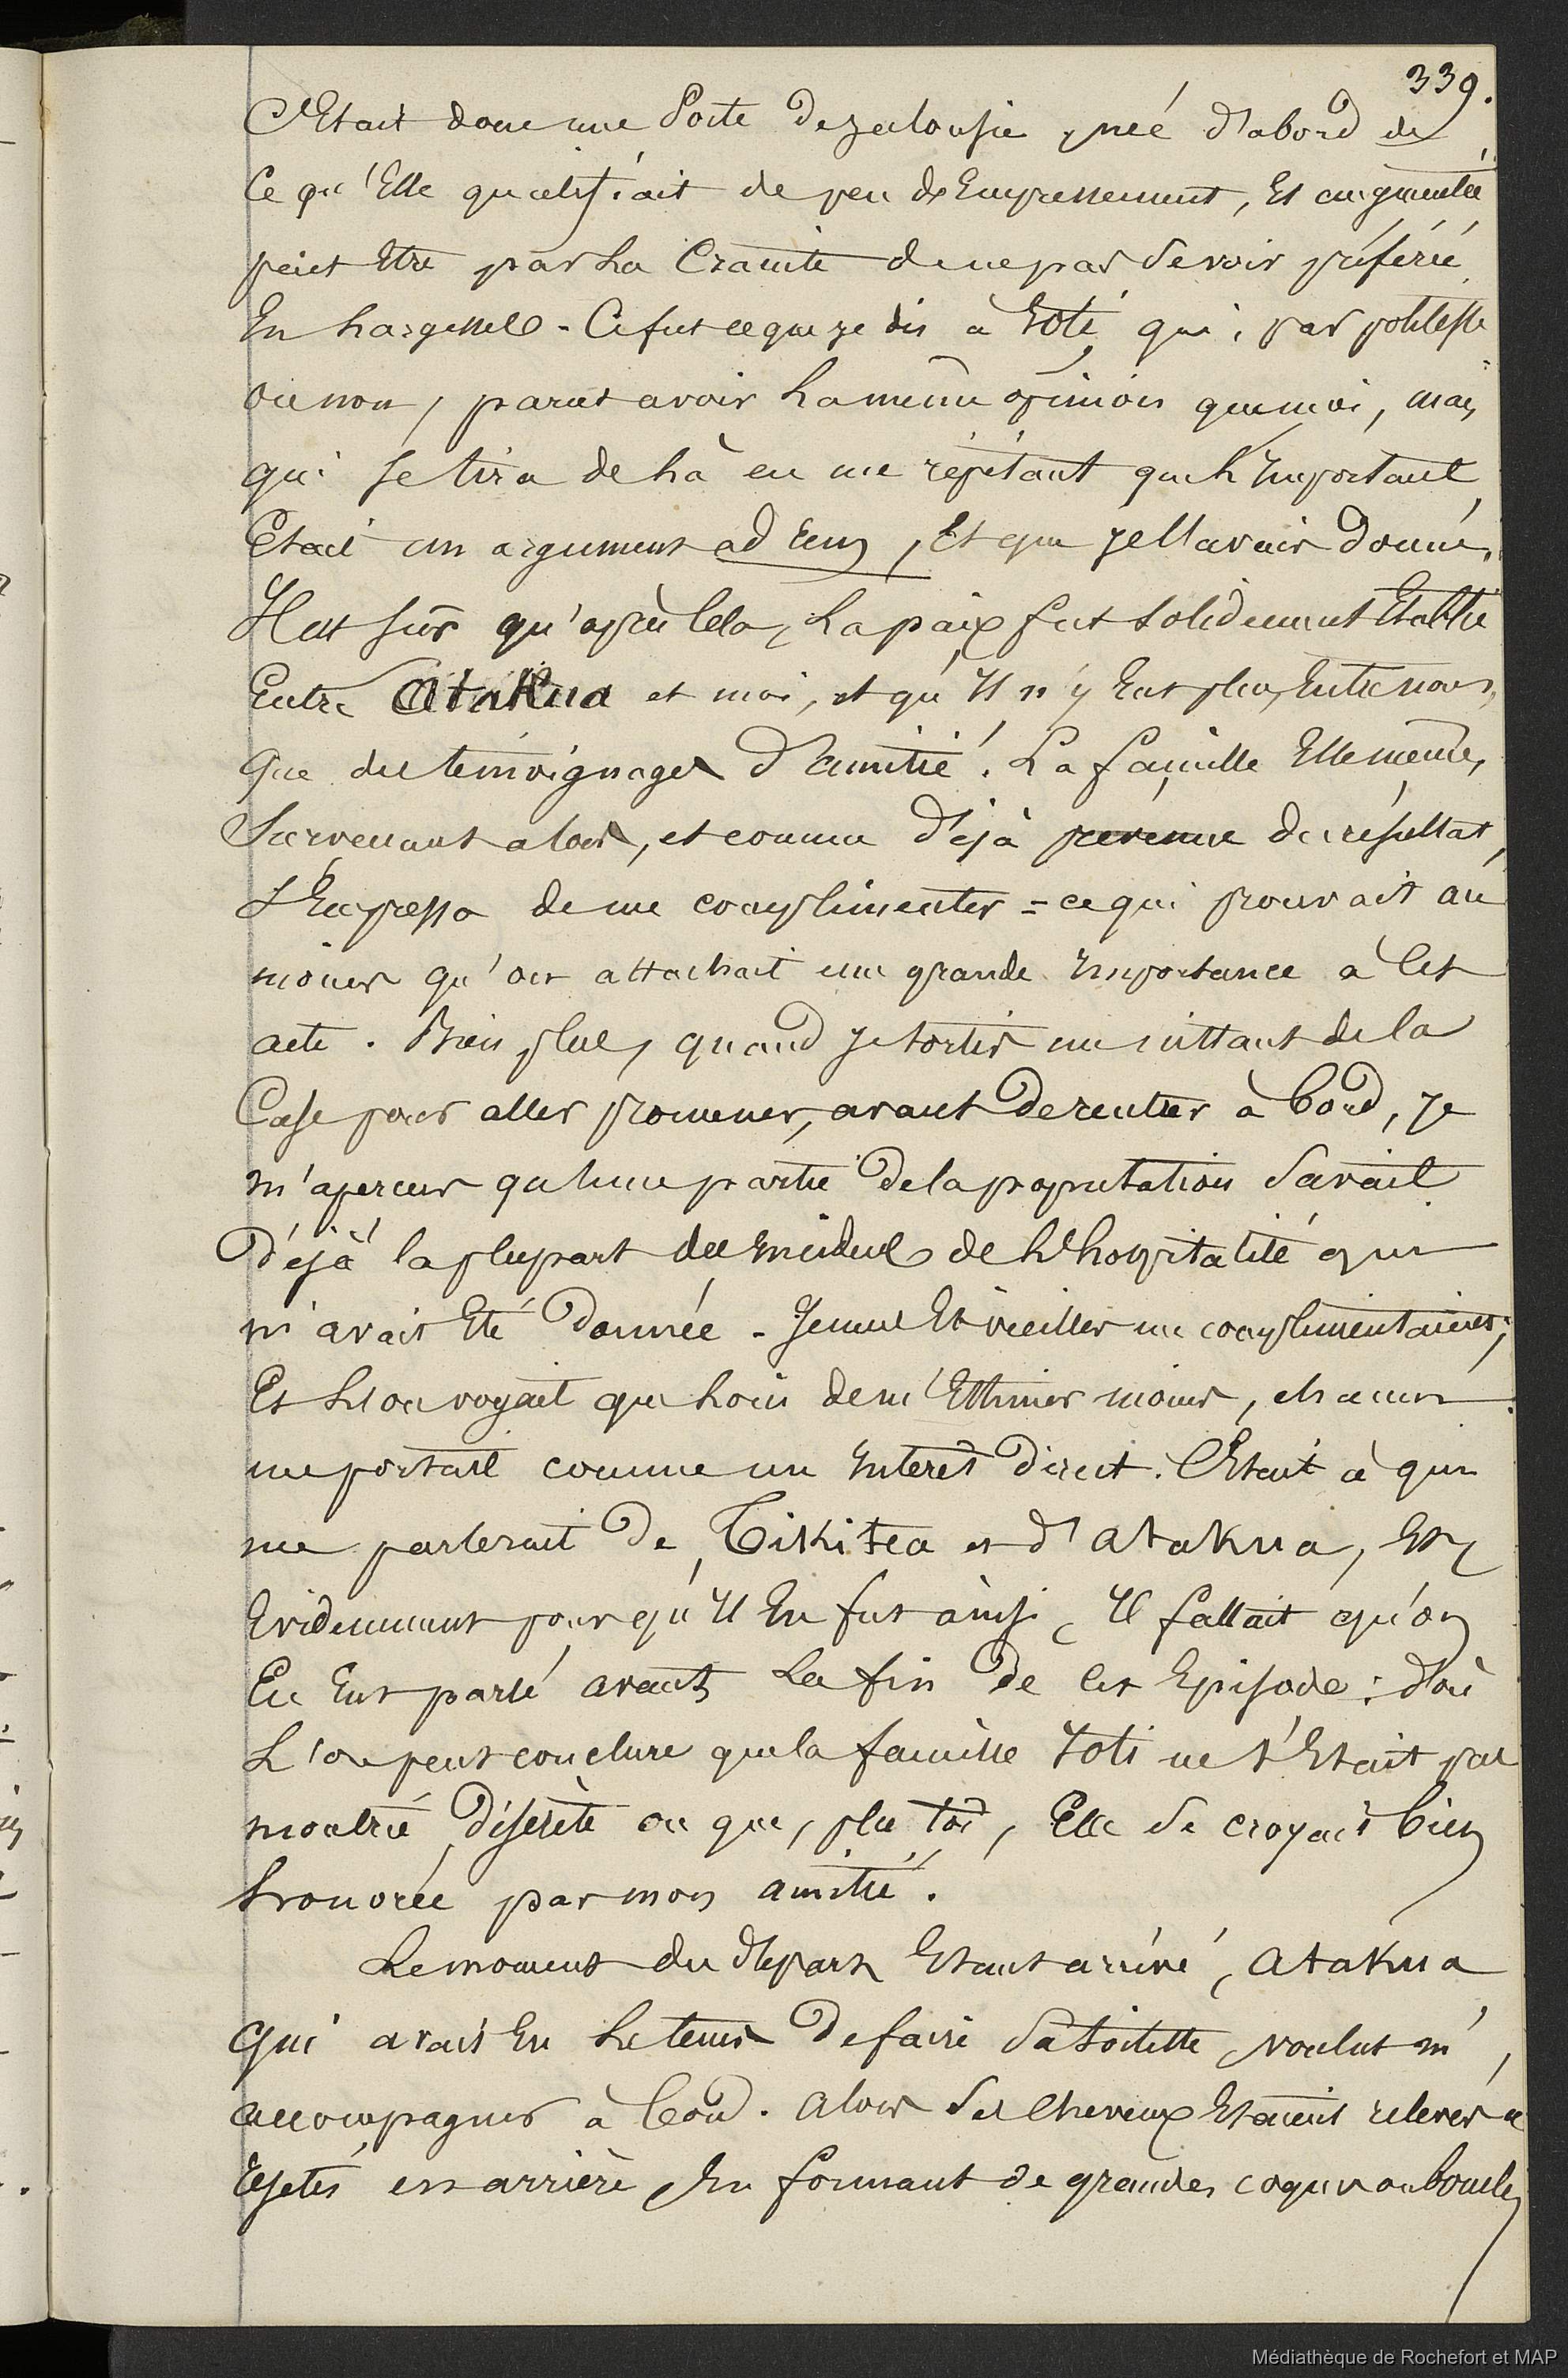 339.
C'Etait donc une Sorte De jalousie, née d'abord de
Ce qu'Elle qualifiait de peu d'Empressement, Et augmentée
peut Etre par La Crainte de ne pas Se voir préférée
En - Ce fut ce que je dis à Toti, qui, par politesse
ou non, parut avoir La même opinion que moi, mais
qui se tira de Là en me répétant que L'Important
Etait un argument ad rem, Et que je l'avais Donné.
Il est sûr qu'après Cela, La paix fut solidement Etablie
Entre Atakua et moi, et qu'Il n'y Eut plus, Entre nous,
que des témoignages D'amitié. La famille Elle même,
Survenant alors, et comme Déjà prévenue du résultat,
S'Empressa de me complimenter = ce qui prouvait au
moins qu'on attachait une grande Importance à Cet
acte. Bien plus, quand je sortis un instant de la
Case pour aller promener, avant De rentrer à bord, je
m'aperçus qu'une partie De la population Savait
Déjà la plupart des de L'hospitalité qui
m'avait Eté Donnée - Jeunes Et vieilles me complimentaient;
Et L'on voyait que Loin de m'Estimer moins, chacun
me portait comme un Interêt Direct. C'Etait à qui
me parlerait De Tikitea et d'Atakua, Et,
Evidemment pour qu'Il En fut ainsi, Il fallait qu'on
En Eut parlé avant La fin De Cet Episode : d'où
L'on peut conclure que la famille Toti ne s'Etait pas
montrée Discrète ou que, plutôt, Elle Se croyait bien
honorée par mon amitié.
Le moment du départ Etant arrivé, Atakua
qui avait Eu Le tems De faire Sa toilette, voulut m'
accompagner à bord. Alors Ses Cheveux Etaient relevés et
rejetés en arrière, En formant de grandes coques ou boucles
Médiathèque de Rochefort et MAP